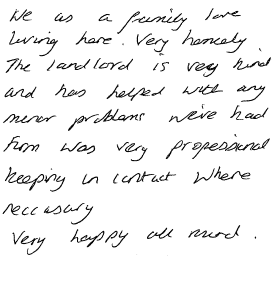 We as a family love
living here. Very homely.
The landlord is very kind
and has helped with any
minor problems we've had
Firm was very professional
keeping in contact where
neccasary
Very happy all round.